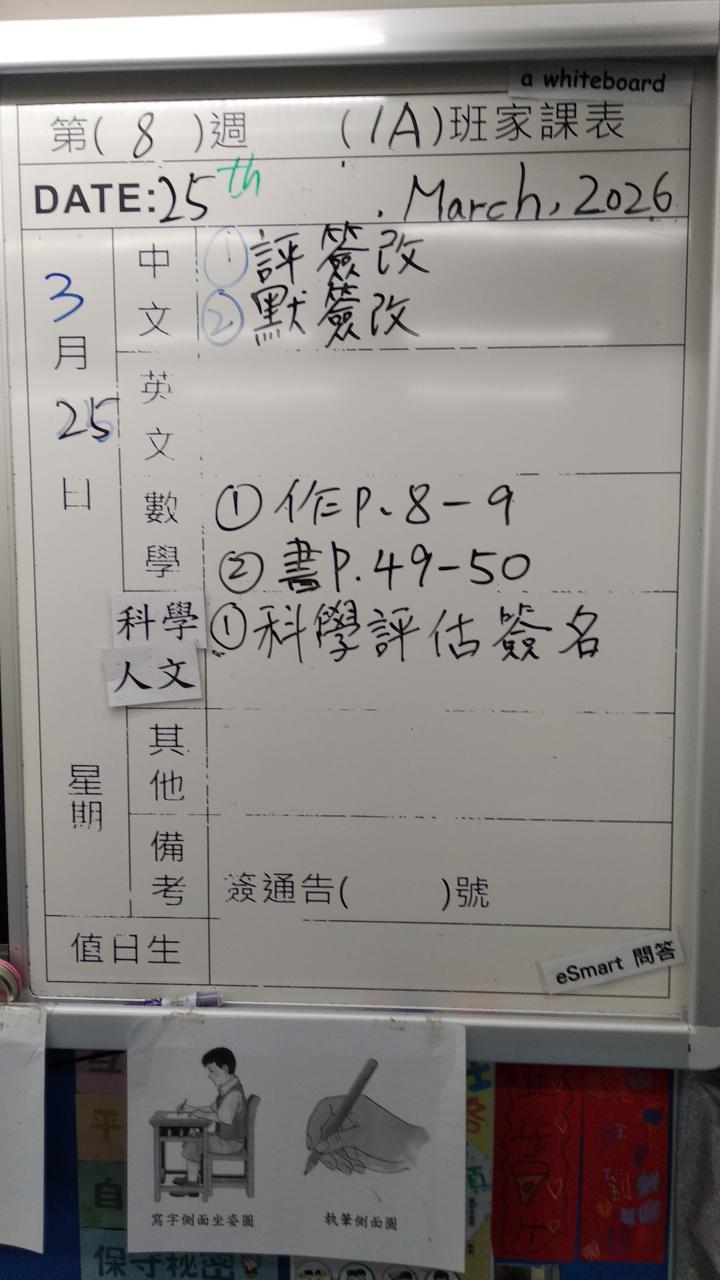 a whiteboard
第( 8 )週 (1A)班家課表
DATE:25th . March, 2026
3月25日
星期
中文
①評簽改
②默簽改
英文
數學
①作P.8-9
②書P.49-50
科學
人文
①科學評估簽名
其他
備考
簽通告( )號
值日生
eSmart 問答
寫字側面坐姿圖
執筆側面圖
平
自
保守秘密